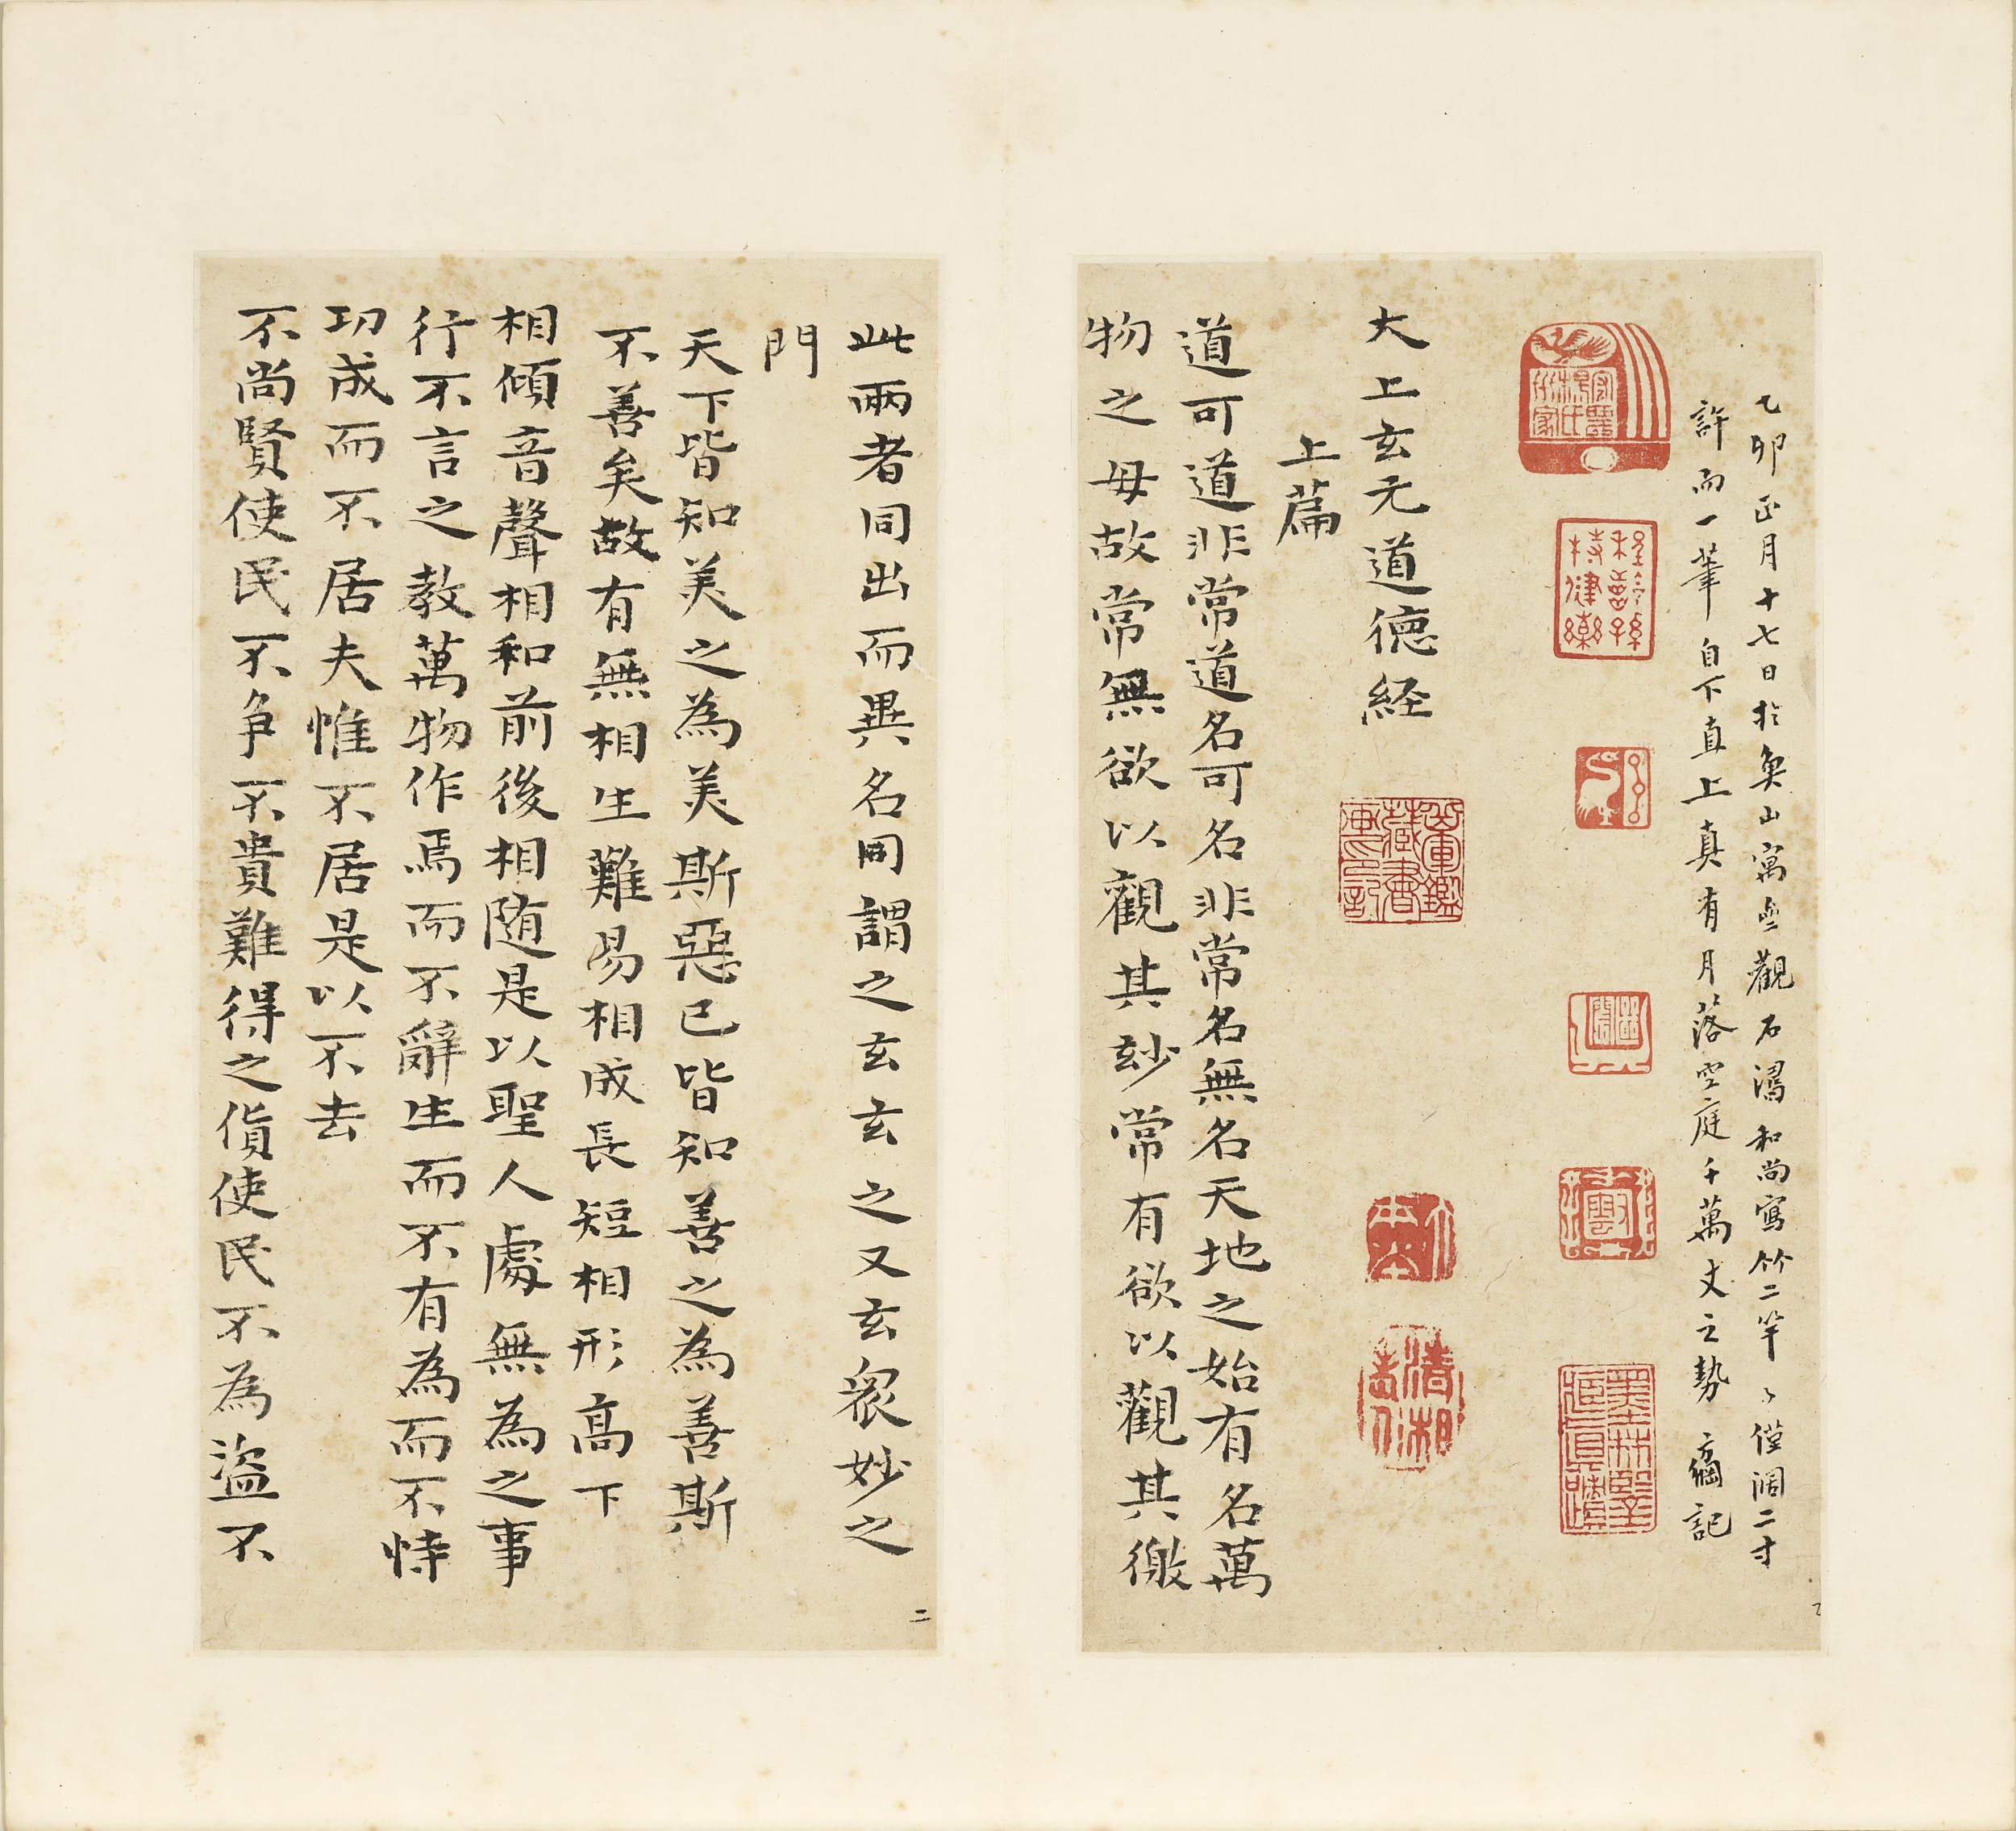 乙卯正月十七日於奐山寓无觀石濤和尚寫竹二竿〻僅闊二寸
許而一筆自下直上真有月落空庭千萬丈之勢 記
大上玄元道德経
上篇
道可道非常道名可名非常名無名天地之始有名萬
物之母故常無欲以觀其玅常有欲以觀其徼
此兩者同出而異名同謂之玄玄之又玄衆妙之
門
天下皆知美之為美斯惡已皆知善之為善斯
不善矣故有無相生難易相成長短相形高下
相傾音聲相和前後相随是以聖人處無為之事
行不言之教萬物作焉而不辭生而不有為而不恃
功成而不居夫惟不居是以不去
不尚賢使民不争不貴難得之貨使民不為盗不
二